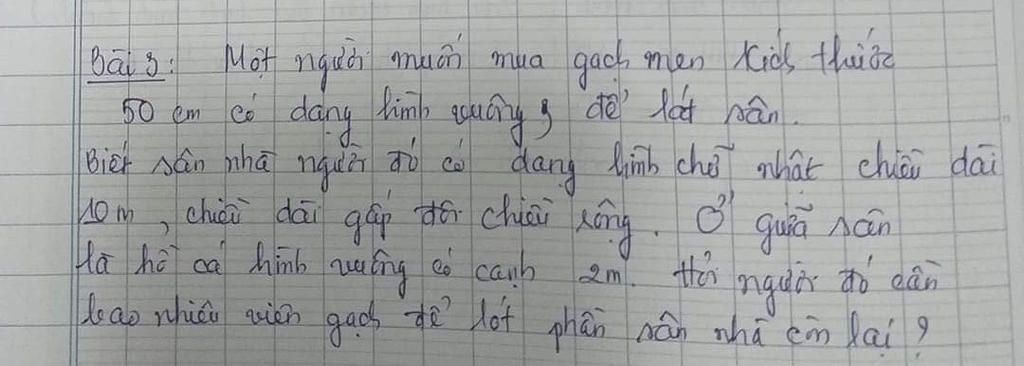 Bài 3: Một người muốn mua gạch men kích thước
50 cm có dạng hình vuông để lát sân.
Biết sân nhà người đó có dạng hình chữ nhật chiều dài
10 m, chiều dài gấp đôi chiều rộng. Ở giữa sân
là hồ cá hình vuông có cạnh 2m. Hỏi người đó cần
bao nhiêu viên gạch để lót phần sân nhà còn lại ?